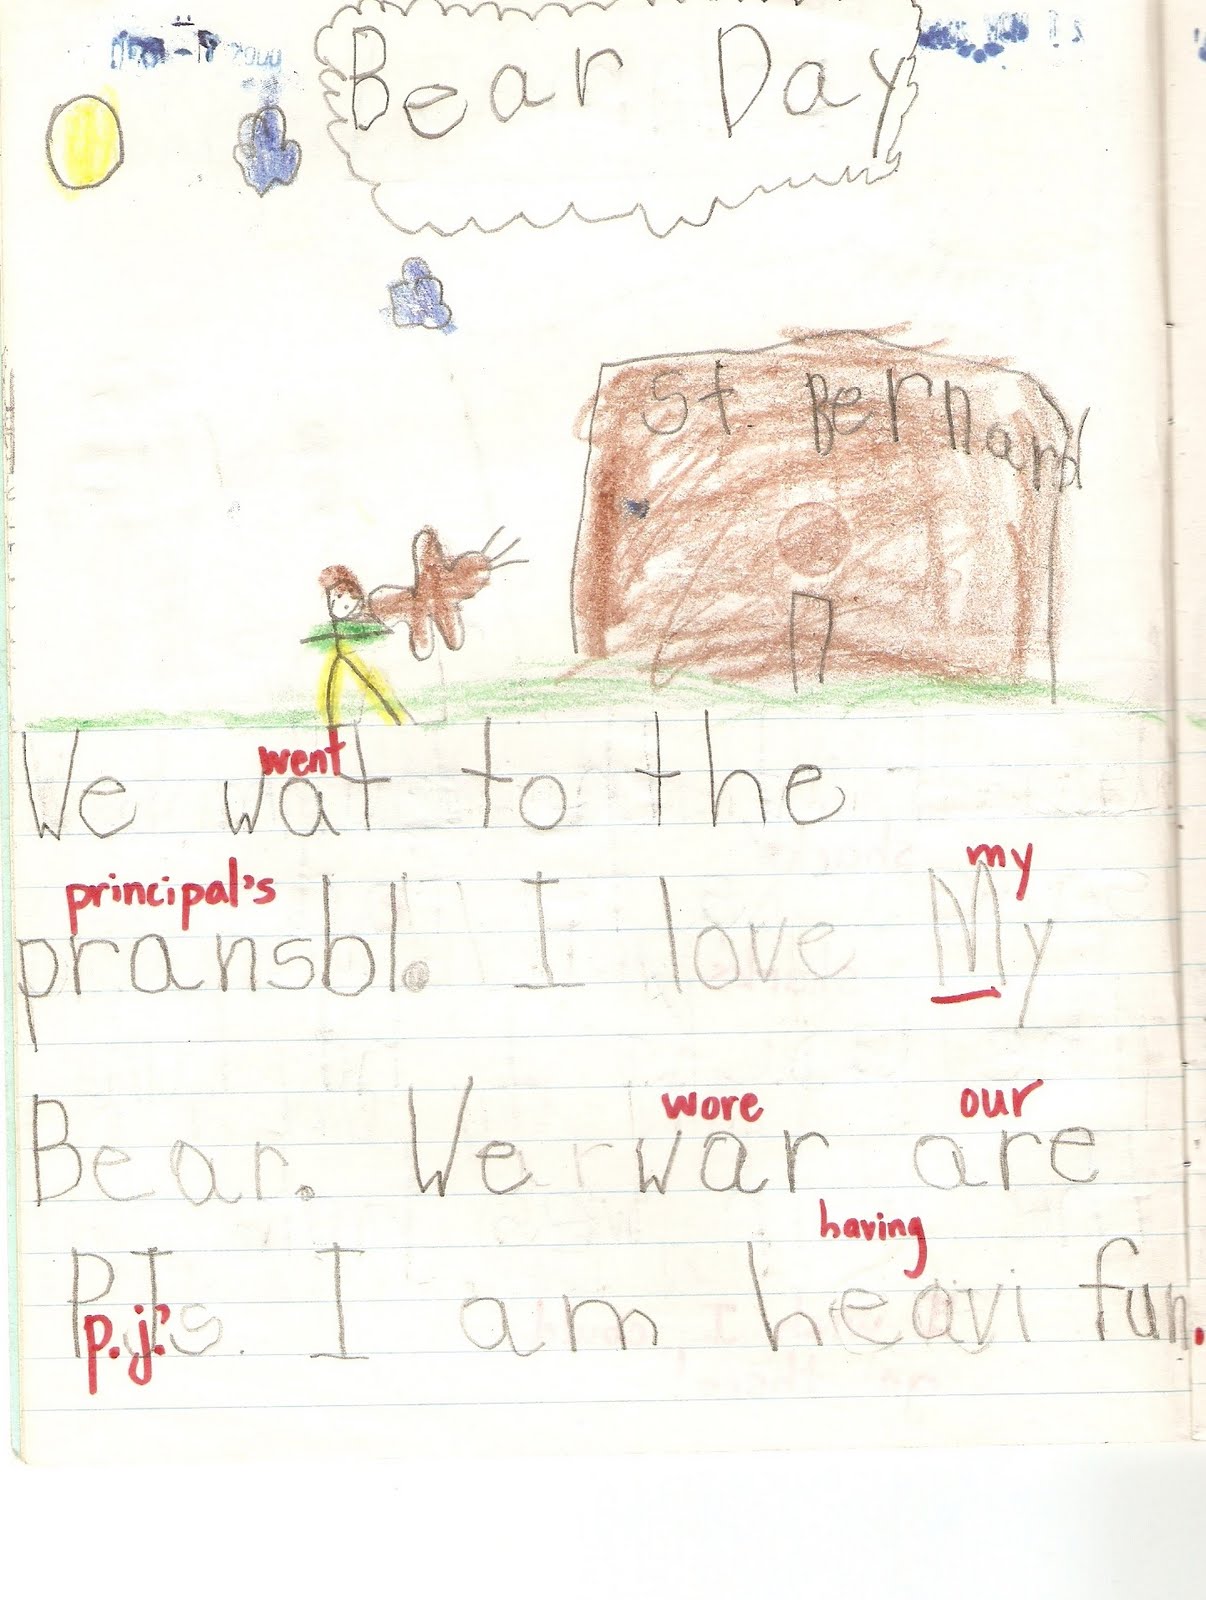 Bear Day
St. Bernard
went
We wat to the
principal's my
pransbl. I love My
wore our
Bear. We war are
having
P.Js. I am heavi fun.
p.j.'